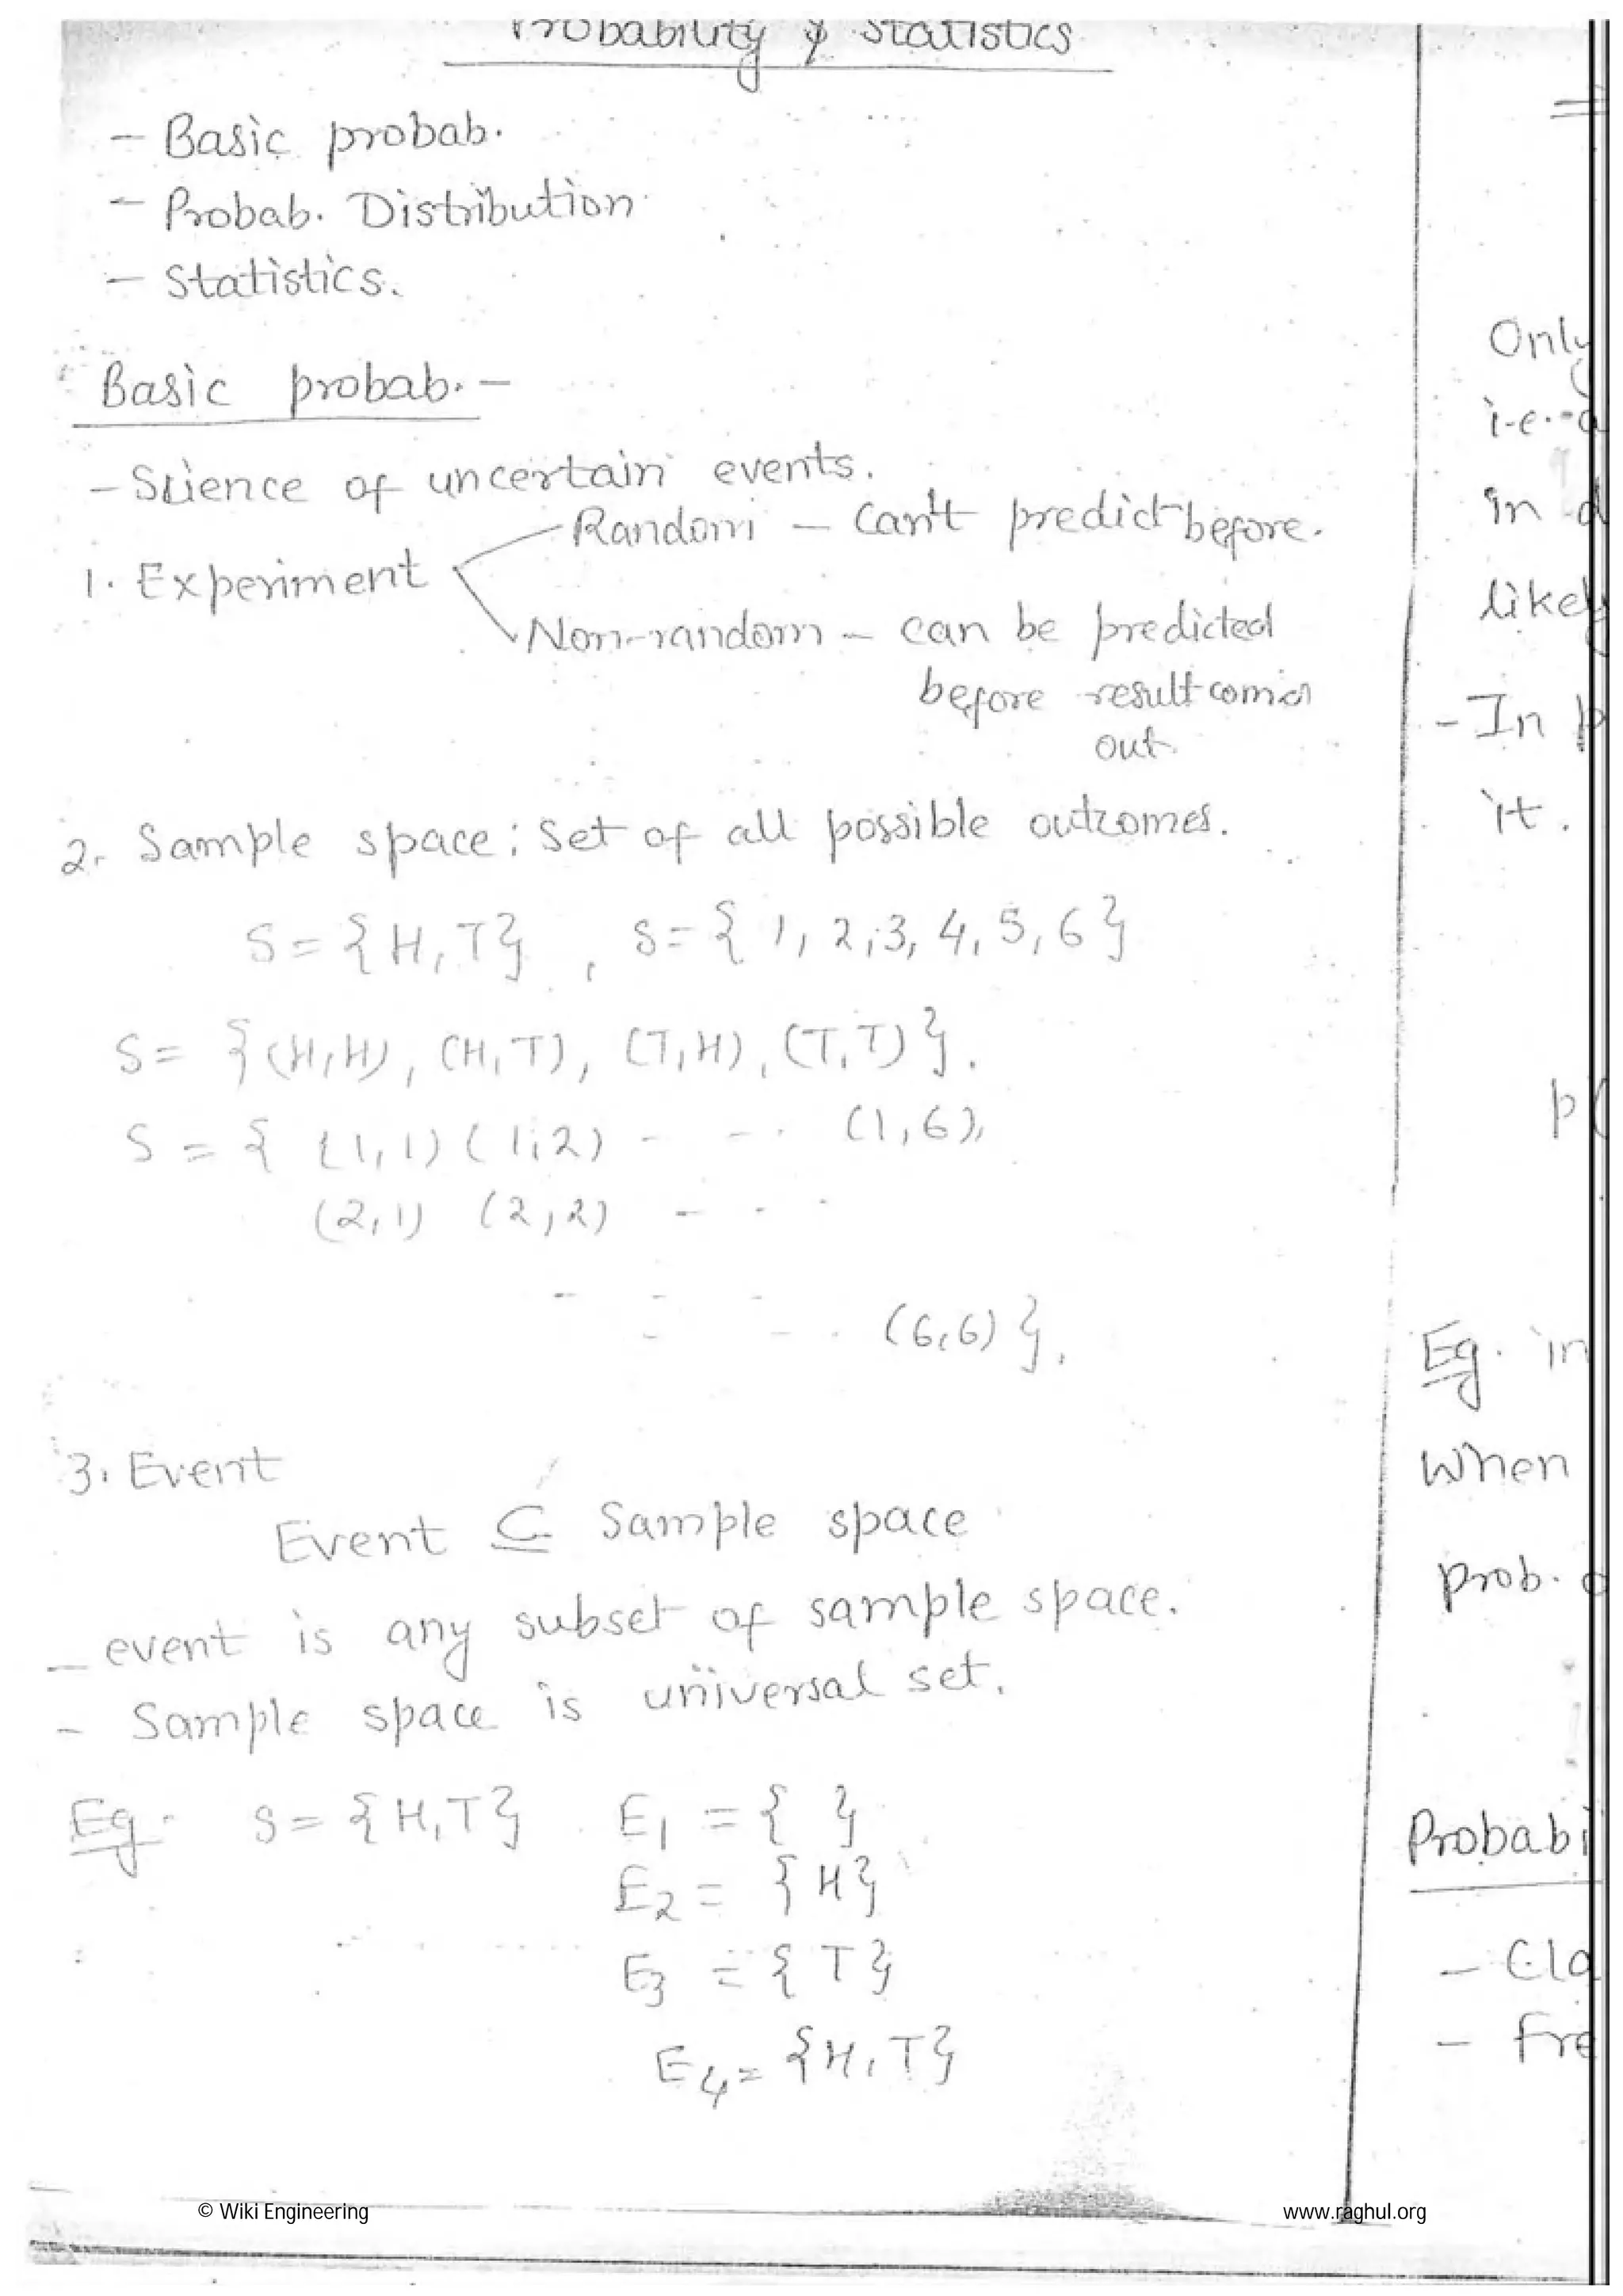 Probability & Statistics
- Basic probab.
- Probab. Distribution
- Statistics.
Basic probab. -
- Science of uncertain events.
Random - Can't predict before.
1. Experiment
Non-random - can be predicted
before result comes
out.
2. Sample space : Set of all possible outcomes.
S = {H, T} , S = { 1, 2, 3, 4, 5, 6 }
S = {(H,H), (H,T), (T,H), (T,T)}.
S = { (1,1) (1,2) - - - (1,6),
(2,1) (2,2) - - -
- - - - - (6,6) }.
3. Event
Event ⊆ Sample space
- event is any subset of sample space.
- Sample space is universal set.
Eg. S = {H,T} E1 = { }
E2 = {H}
E3 = {T}
E4 = {H,T}
Only
i.e.
in
likely
- In
it.
p(
Eg. in
When
prob.
Probabi
- Cla
- Fre
© Wiki Engineering www.raghul.org